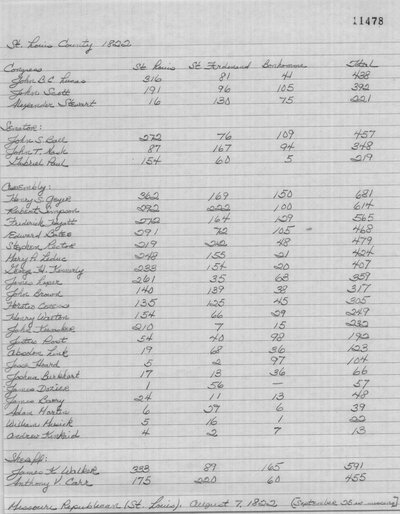 11478
St. Louis County 1822
Congress St. Louis St. Ferdinand Bonhomme Total
John B.C. Lucas 316 81 41 438
John Scott 191 96 105 392
Alexander Stewart 16 130 75 221
Senator:
John S. Ball 272 76 109 457
John T. Nash 87 167 94 348
Gabriel Paul 154 60 5 219
Assembly:
Henry S. Geyer 362 169 150 681
Robert Simpson 292 222 100 614
Frederick Hyatt 272 164 129 565
Edward Bates 291 72 105 468
Stephen Rector 219 212 48 479
Mary P. Leduc 248 155 21 424
George H. Kennerly 233 154 20 407
James Roper 261 35 63 359
John Brown 140 139 38 317
Horatio Cozens 135 125 45 305
Henry Walton 154 66 29 249
John 210 7 15 232
Justus Post 54 40 98 192
Absalom Link 19 68 36 123
Jesse Hoard 5 2 97 104
Joshua Burkhart 17 13 36 66
James 1 56 — 57
James Barry 24 11 13 48
Adam Martin 6 27 6 39
William 5 16 1 22
Andrew Kinkaid 4 2 7 13
Sheriff:
James K. Walker 338 89 165 591
Anthony V. Carr 175 220 60 455
Missouri Republican (St. Louis), August 7, 1822 (September 25 is missing)